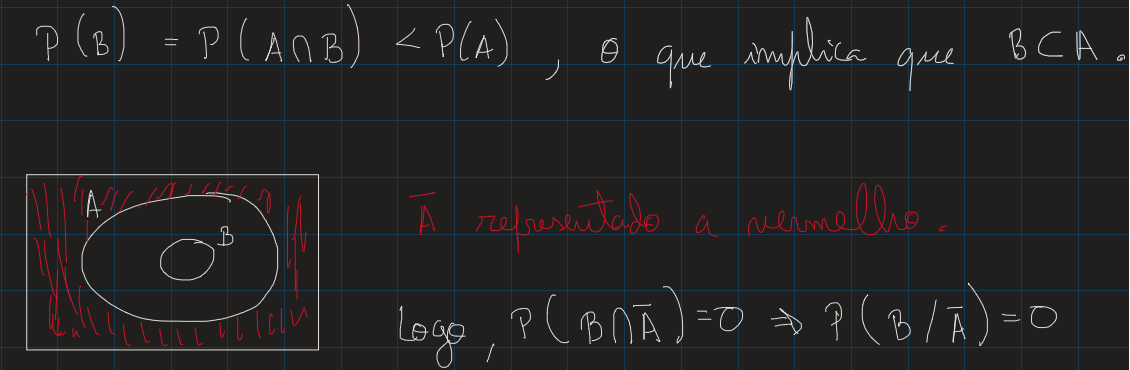 P(B) = P(A∩B) < P(A), o que implica que B⊂A.
A
B
Ā representado a vermelho.
Logo, P(B∩Ā)=0 ⇒ P(B/Ā)=0